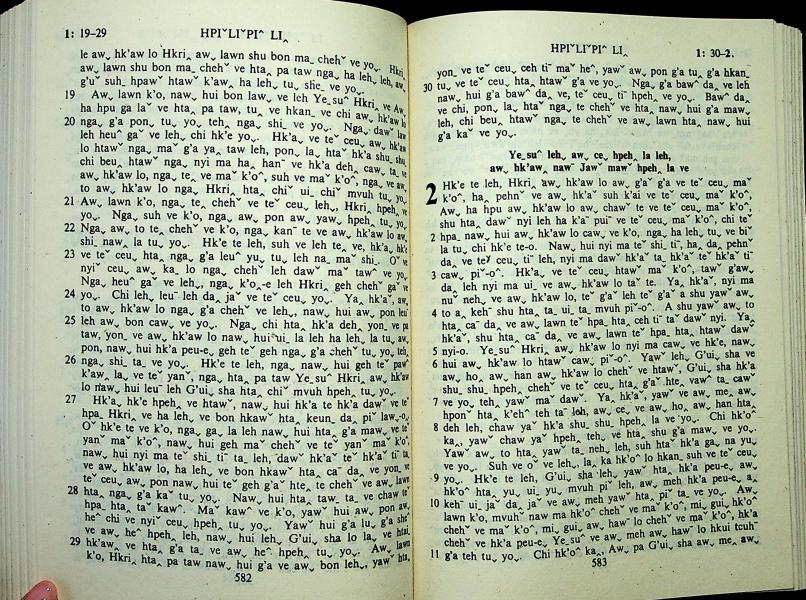 1: 19–29 HPIˇLIˇPIˆ LI‸
le awꞈ hk'aw lo Hkri‸ awꞈ lawn shu bon ma‸ chehˇ ve yoꞈ. Hkri‸
awꞈ lawn shu bon ma‸ chehˇ ve hta‸ pa taw nga‸ ha leh, leh, awꞈ
g'uˇ suh‸ hpawˇ htawˇ k'aw‸ ha leh, tu‸ she‸ ve yoꞈ.
19 Awꞈ lawn k'o, nawꞈ hui bon lawꞈ ve leh Ye‸suˆ Hkri‸ ve Awꞈ
ha hpu ga laˇ ve hta‸ pa taw, tu‸ ve hkan‸ ve chi awꞈ hk'aw lo
20 nga‸ g'a pon‸ tu‸ yo, teh‸ nga‸ shi‸ ve yoꞈ. Nga‸ dawˇ law
leh heuˆ gaˇ ve leh, chi hk'e yoꞈ. Hk'a‸ ve teˇ ceu‸ awꞈ hk'aw
lo htawˇ nga‸ maˇ g'a ya‸ taw leh, pon‸ la‸ htaˇ hk'a shu‸ shu‸
chi beu‸ htawˇ nga‸ nyi ma ha‸ hanˉ ve hk'a deh‸ caw‸ ta‸ ve
awꞈ hk'aw lo, nga‸ te‸ ve maˇ k'oˆ, suh ve maˇ k'oˆ, nga‸ ve awꞈ
to awꞈ hk'aw lo nga‸ Hkri‸ hta‸ chiˇ ui‸ chiˇ mvuh tu‸ yoꞈ.
21 Awꞈ lawn k'o, nga‸ te‸ chehˇ ve teˇ ceu‸ leh‸, Hkri‸ hpeh‸ ve
yoꞈ. Nga‸ suh ve k'o, nga‸ awꞈ pon awꞈ yaw‸ hpeh‸ tu‸ yoꞈ.
22 Nga‸ awꞈ to te‸ chehˇ ve k'o, nga‸ kanˉ te ve awꞈ hk'aw lo awꞈ
shi‸ naw‸ la tu‸ yoꞈ. Hk'e te leh, suh ve leh te‸ ve, hk'a‸ hk'e
23 ve teˇ ceu‸ hta‸ nga‸ g'a leuˆ yu‸ tu‸ leh na‸ maˇ shi‸. Oˇ ve
nyiˇ ceu‸ awꞈ ka‸ lo nga‸ chehˇ leh dawˇ maˇ tawˆ ve yoꞈ.
Nga‸ heuˆ gaˇ ve leh‸, nga‸ k'o‸-e leh Hkri‸ geh chehˇ gaˇ ve
24 yoꞈ. Chi leh‸ leuˉ leh da‸ jaˇ ve teˇ ceu‸ yoꞈ. Ya‸ hk'aˇ, awꞈ
to awꞈ hk'aw lo nga‸ g'a chehˇ ve leh‸, nawꞈ hui awꞈ pon leuˉ
25 leh awꞈ bon cawꞈ ve yoꞈ. Nga‸ chi hta‸ hk'a deh‸ yon‸ ve pa
taw, yon‸ ve awꞈ hk'aw lo nawꞈ hui ui‸ la leh ha leh‸ la tu‸ awꞈ
pon, nawꞈ hui hk'a peu-e, geh teˇ geh nga‸ g'a chehˇ tu‸ yo, teh‸
26 nga‸ shi‸ ta‸ ve yoꞈ. Hk'e te leh, nga‸ nawꞈ hui geh teˇ pawˇ
k'aw‸ la‸ ve te yanˇ, nga‸ hta‸ pa taw Ye‸suˆ Hkri‸ awꞈ hk'aw
lo nawꞈ hui leuˉ leh G'ui‸ sha hta‸ chiˇ mvuh hpeh‸ tu‸ yoꞈ.
27 Hk'a‸ hk'e hpeh ve htawˇ, nawꞈ hui hk'a te hk'a dawˇ ve teˇ
hpa‸ Hkri‸ ve ha leh‸ ve bon hkawˇ hta‸ keun‸ da‸ piˇ law‸-oꞈ
Oˇ hk'e te ve k'o, nga‸ ga‸ la leh nawꞈ hui hta‸ g'a maw‸ ve te
yanˇ maˇ k'oˆ, nawꞈ hui geh maˇ chehˇ ve teˇ yanˇ maˇ k'oˆ,
nawꞈ hui nyi ma teˇ shi‸ tiˉ ta‸ leh‸ dawˇ hk'aˇ teˇ hk'aˇ tiˉ ta‸
ve awꞈ hk'aw lo, ha leh‸ ve bon hkawˇ hta‸ caˉ da‸ ve yon‸ ve
teˇ ceu‸ awꞈ pon nawꞈ hui teˇ geh g'aˇ hte‸ te chehˇ ve awꞈ lawn
28 hta‸ nga‸ g'a kaˇ tu‸ yoꞈ. Nawꞈ hui hta‸ taw‸ ta‸ ve chaw teˇ
hpa‸ hta‸ taˇ kawˇ. Maˇ kawˇ ve k'o, yawˇ hui awꞈ pon awꞈ
heˆ chi ve nyiˇ ceu‸ hpeh‸ tu‸ yoꞈ. Yawˇ hui g'a lu‸ g'a sheˆ
ve awꞈ heˆ hpeh‸ leh, nawꞈ hui leh‸ G'ui‸ sha lo la‸ ve htaiˉ
29 hk'aw‸ ve hta‸ g'a ta‸ ve awꞈ heˆ hpeh‸ tu‸ yoꞈ. Awꞈ lawn
k'o, Hkri‸ hta‸ pa taw nawꞈ hui g'a ve awꞈ bon leh‸, yawˇ hta‸
582
HPIˇLIˇPIˆ LI‸ 1: 30–2.
yon‸ ve teˇ ceu‸ ceh tiˉ maˇ heˆ, yawˇ awꞈ pon g'a tu‸ g'a hkan‸
30 tu‸ ve teˇ ceu‸ hta‸ htawˇ g'a ve yoꞈ. Nga‸ g'a bawˇ da‸ ve leh
nawꞈ hui g'a bawˇ da‸ ve, teˇ ceu‸ tiˉ hpeh‸ ve yoꞈ. Bawˇ da‸
ve chi, pon‸ la‸ htaˇ nga‸ te chehˇ ve hta‸ nawꞈ hui g'a maw‸
leh, chi beu‸ htawˇ nga‸ te chehˇ ve awꞈ lawn hta‸ nawꞈ hui
g'a kaˇ ve yoꞈ.
Ye‸suˆ leh‸ awꞈ ce‸ hpeh‸ la leh,
awꞈ hk'aw‸ nawˇ Jawˇ mawˇ hpeh‸ la ve
2 Hk'e te leh, Hkri‸ awꞈ hk'aw lo awꞈ g'aˇ g'a ve teˇ ceu‸ maˇ
k'oˆ, ha‸ pehnˇ ve awꞈ hk'aˇ suh k'ai ve teˇ ceu‸ maˇ k'oˆ,
Awꞈ ha hpu awꞈ hk'aw lo awꞈ chawˇ te ve teˇ ceu‸ maˇ k'oˆ,
shu hta‸ dawˇ nyi leh ha k'aˇ puiˉ ve teˇ ceu‸ maˇ k'oˆ, chi teˇ
2 hpa‸ nawꞈ hui awꞈ hk'aw lo cawꞈ ve k'o, nga‸ ha leh‸ tu‸ ve biˇ
la tu‸ chi hk'e te-o. Nawꞈ hui nyi ma teˇ shi‸ tiˉ, ha da‸ pehnˇ
da‸ ve teˇ ceu‸ tiˉ leh, nyi ma dawˇ hk'aˇ ta‸ hk'aˇ te hk'aˇ tiˉ
3 cawꞈ piˇ-oˆ. Hk'a‸ ve teˇ ceu‸ htawˇ maˇ k'oˆ, tawˇ g'aw‸
da‸ leh nyi ma ui‸ ve awꞈ hk'aw lo taˇ te. Ya‸ hk'aˇ, nyi ma
nuˉ neh‸ ve awꞈ hk'aw lo, teˇ g'aˇ leh teˇ g'aˇ a shu yawˇ awꞈ
4 to a‸ kehˉ shu hta‸ ta‸ ui‸ ta‸ mvuh piˇ-oˆ. A shu yawˇ awꞈ to
hta‸ caˉ da‸ ve awꞈ lawn teˇ hpa‸ hta‸ ceh tiˉ taˇ daw‸ nyi. Ya‸
hk'aˇ, shu hta‸ caˉ da‸ ve awꞈ lawn teˇ hpa‸ hta‸ htawˇ dawˇ
5 nyi-o. Ye‸suˆ Hkri‸ awꞈ hk'aw lo nyi ma cawꞈ ve hk'e, nawꞈ
6 hui awꞈ hk'aw lo htawˇ cawꞈ piˇ-oˆ. Yawˇ leh‸ G'ui‸ sha ve
awꞈ ho‸ awꞈ han awꞈ hk'aw lo chehˇ ve htawˇ, G'ui‸ sha hk'a
shu‸ shu‸ hpeh‸ chehˇ ve teˇ ceu‸ hta‸ g'aˇ hte‸ vawˆ ta‸ cawˇ
7 ve yo, teh‸ yawˇ maˇ dawˇ. Ya‸ hk'aˇ, yawˇ ve awꞈ me‸ awꞈ
hponˇ hta‸ k'ehˇ teh taˉ leh, awꞈ ce‸ ve awꞈ ho‸ awꞈ han hta‸
8 deh leh, chaw yaˇ hk'a shu‸ shu‸ hpeh‸ la ve yoꞈ. Chi hk'oˆ
ka‸, yawˇ chaw yaˇ hpeh‸ teh‸ ve hta‸ shu g'a mawˇ ve yoꞈ.
Yawˇ awꞈ to hta‸ yawˇ ta‸ neh‸ leh, suh htaˇ hk'a ga‸ na yu‸
ve yoꞈ. Suh ve oˇ ve leh‸, la‸ ka hk'oˆ lo hkan‸ suh ve teˇ ceu‸
9 yoꞈ. Hk'e te leh, G'ui‸ sha leh‸ yawˇ hta‸ hk'a peu-e‸ awꞈ
hk'oˆ hta‸ yu‸ ui‸ yu‸ mvuh piˇ leh, awꞈ meh hk'a peu-e‸ a‸
10 kehˉ ui‸ jaˇ da‸ jaˇ ve awꞈ meh yawˇ hta‸ piˇ ta‸ ve yoꞈ. Awꞈ
lawn k'o, mvuhˇ naw ma hk'oˆ chehˇ ve maˇ k'oˆ, mi‸ gui‸ hk'oˆ
chehˇ ve maˇ k'oˆ, mi‸ gui‸ awꞈ hawˇ lo chehˇ ve maˇ k'oˆ, hk'a
chehˇ ve hk'a peu-e‸ Ye‸suˆ ve awꞈ meh awꞈ hawˇ lo hkui tcuhˉ
11 g'a teh tu‸ yoꞈ. Chi hk'oˆ ka‸, Awꞈ pa G'ui‸ sha awꞈ me‸ awꞈ
583